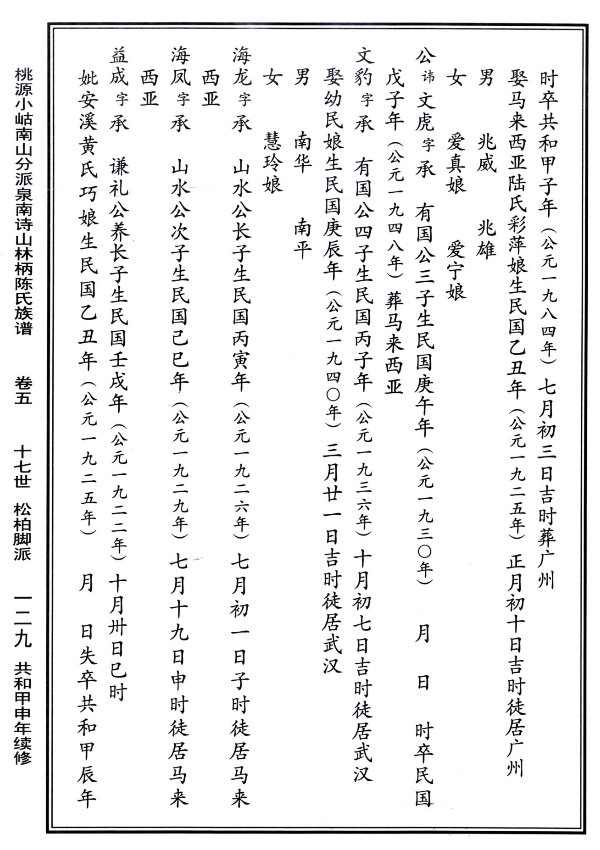 时卒共和甲子年（公元一九八四年）七月初三日吉时葬广州
娶马来西亚陆氏彩萍娘生民国乙丑年（公元一九二五年）正月初十日吉时徒居广州
男　兆威　兆雄
女　爱真娘　爱宁娘
公讳文虎字承　有国公三子生民国庚午年（公元一九三〇年）　月　日　时卒民国
戊子年（公元一九四八年）葬马来西亚
文豹字承　有国公四子生民国丙子年（公元一九三六年）十月初七日吉时徒居武汉
娶幼民娘生民国庚辰年（公元一九四〇年）三月廿一日吉时徒居武汉
男　南华　南平
女　慧玲娘
海龙字承　山水公长子生民国丙寅年（公元一九二六年）七月初一日子时徒居马来
西亚
海凤字承　山水公次子生民国己巳年（公元一九二九年）七月十九日申时徒居马来
西亚
益成字承　谦礼公养长子生民国壬戌年（公元一九二二年）十月卅日巳时
妣安溪黄氏巧娘生民国乙丑年（公元一九二五年）　月　日失卒共和甲辰年
桃源小岵南山分派泉南诗山林柄陈氏族谱　卷五　十七世　松柏脚派　一二九　共和甲申年续修